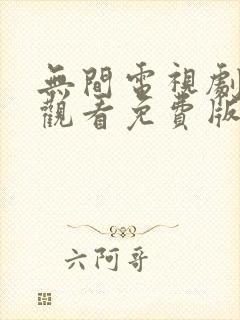 無間電視劇
觀看免費版
六阿哥